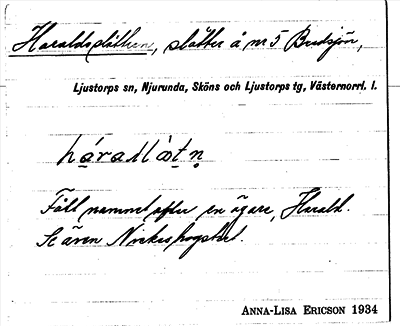 Haraldsslåtten, slåtter å nr 5 Bredsjön,
Ljustorps sn, Njurunda, Sköns och Ljustorps tg, Västernorrl. l.
Fått namnet efter en ägare, Harald.
Se även
ANNA-LISA ERICSON 1934